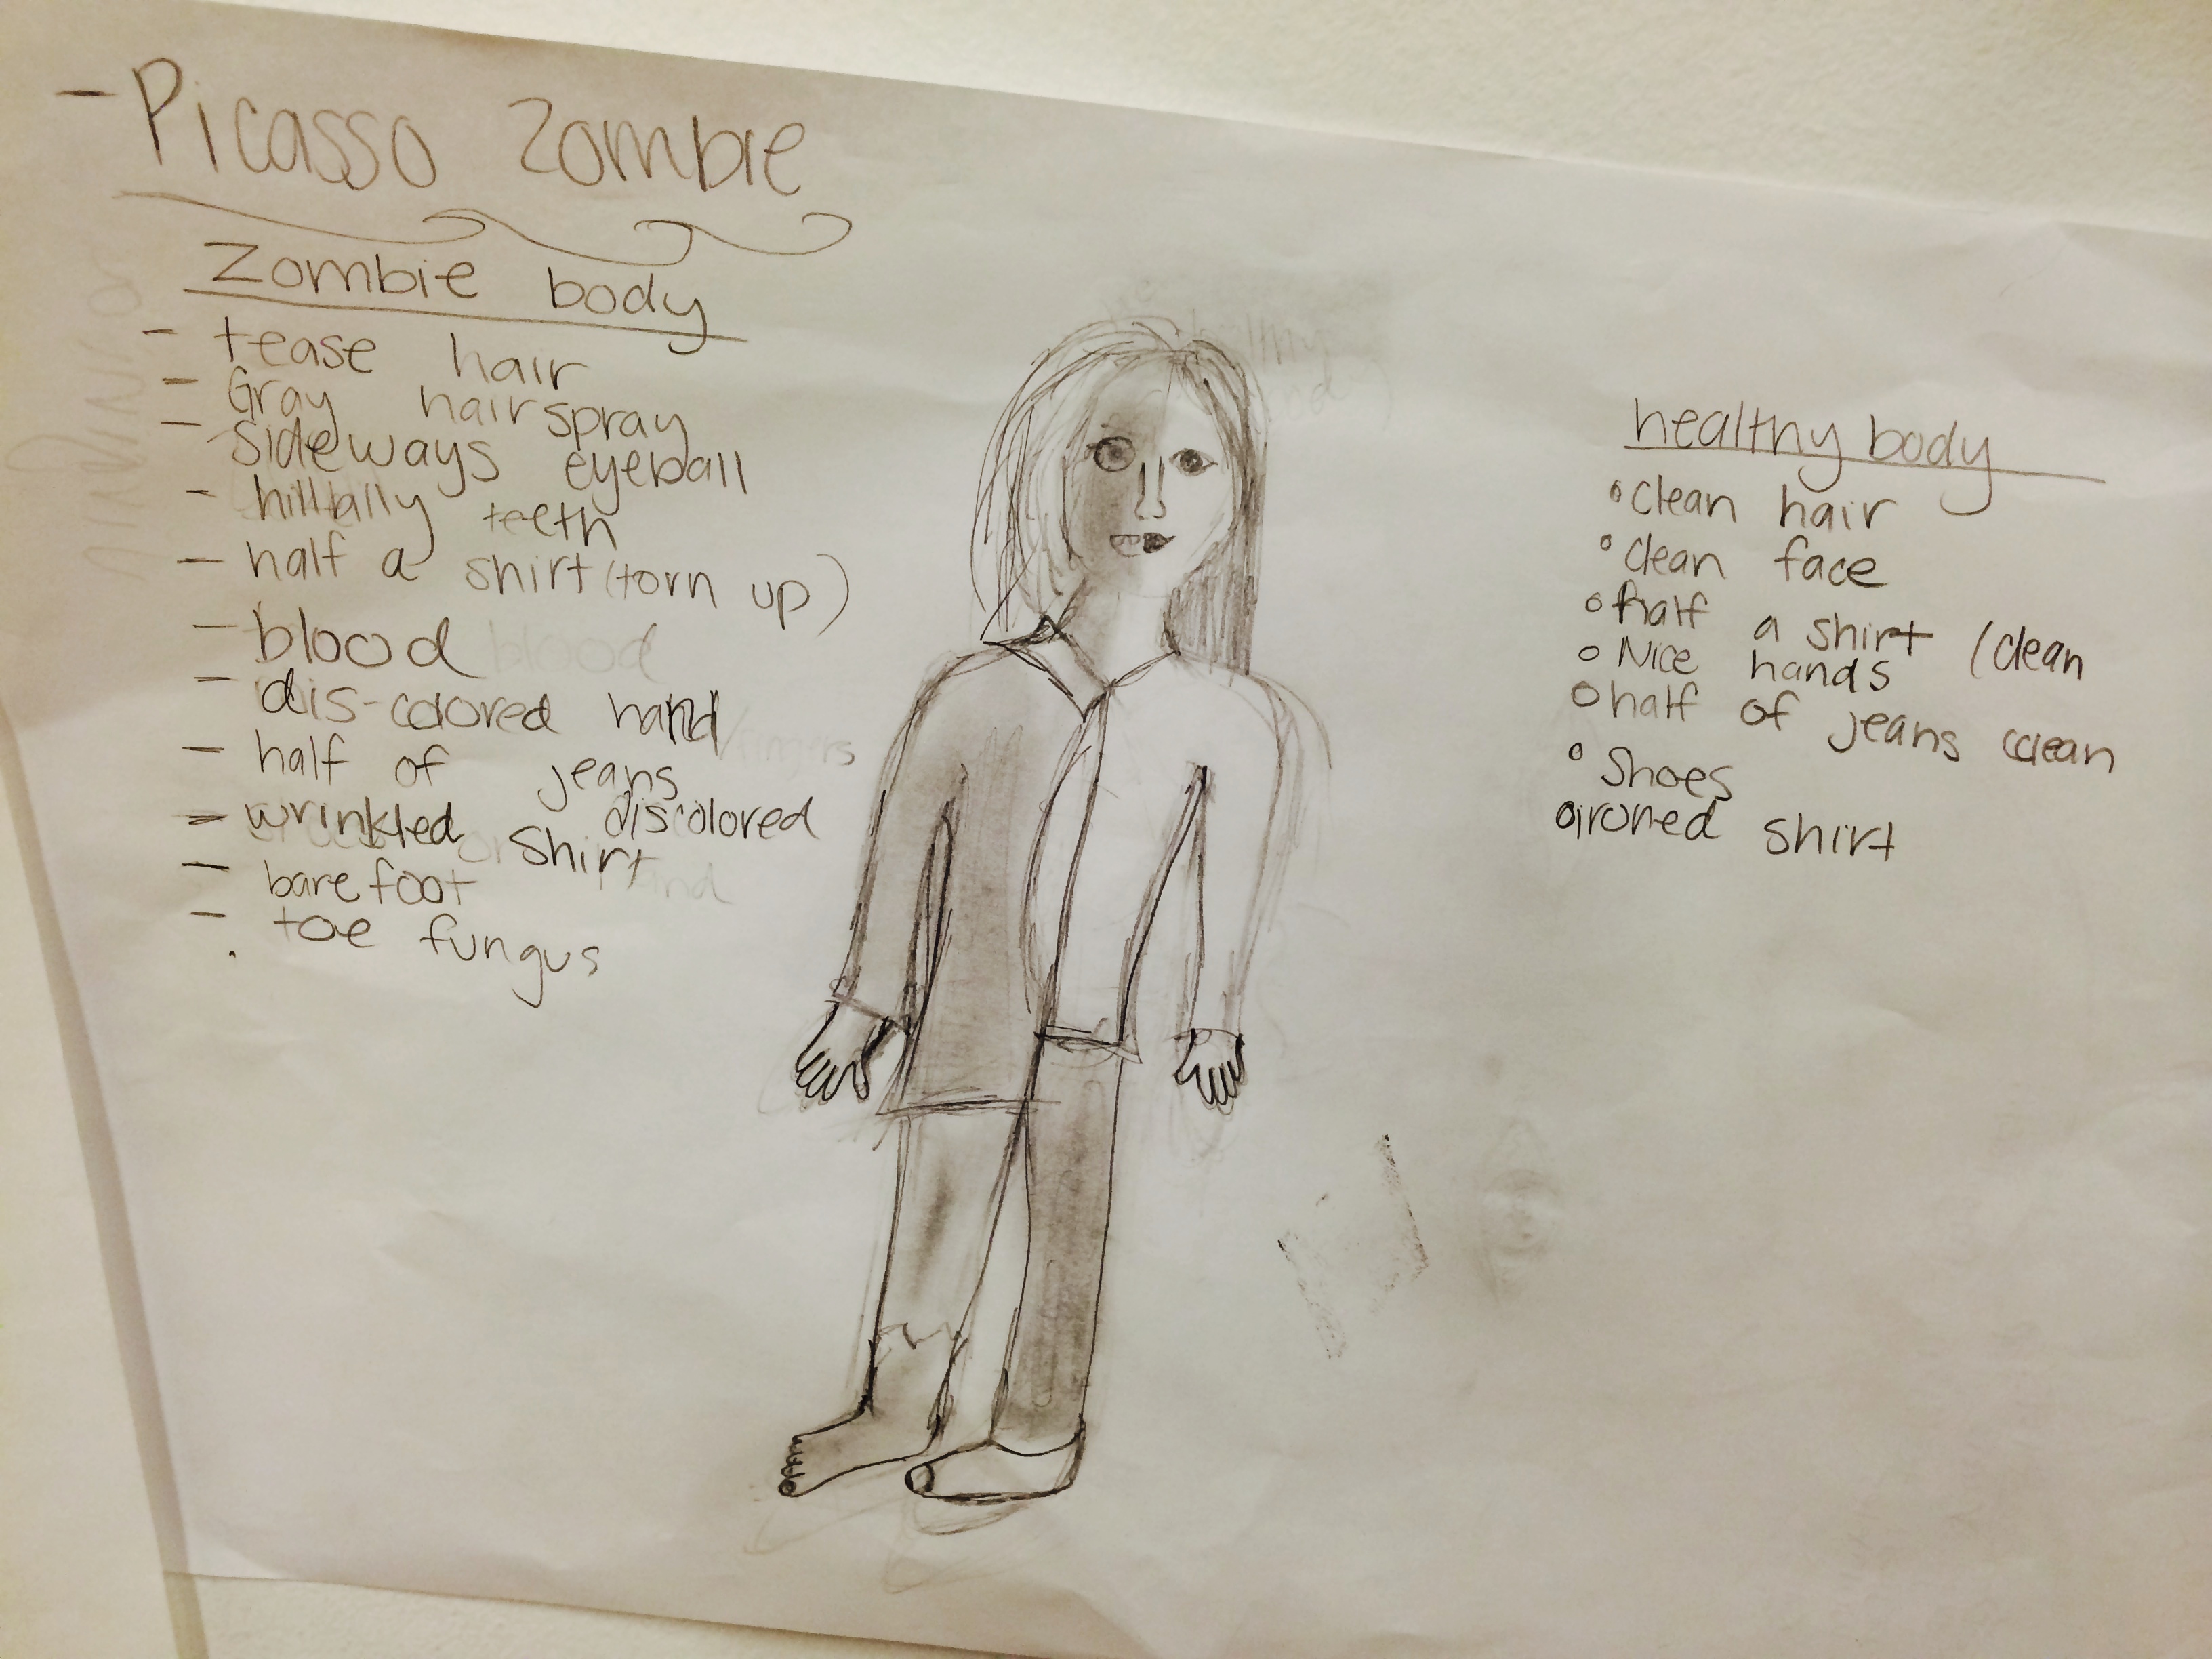 - Picasso Zombie
Zombie body
- tease hair
- Gray hairspray
- sideways eyeball
- hillbilly teeth
- half a shirt (torn up)
- blood blood
- dis-colored hand/fingers
- half of jeans discolored
- wrinkled shirt
- barefoot
- toe fungus
healthy body
• clean hair
• clean face
• half a shirt (clean
• Nice hands
• half of jeans clean
• Shoes
• ironed shirt